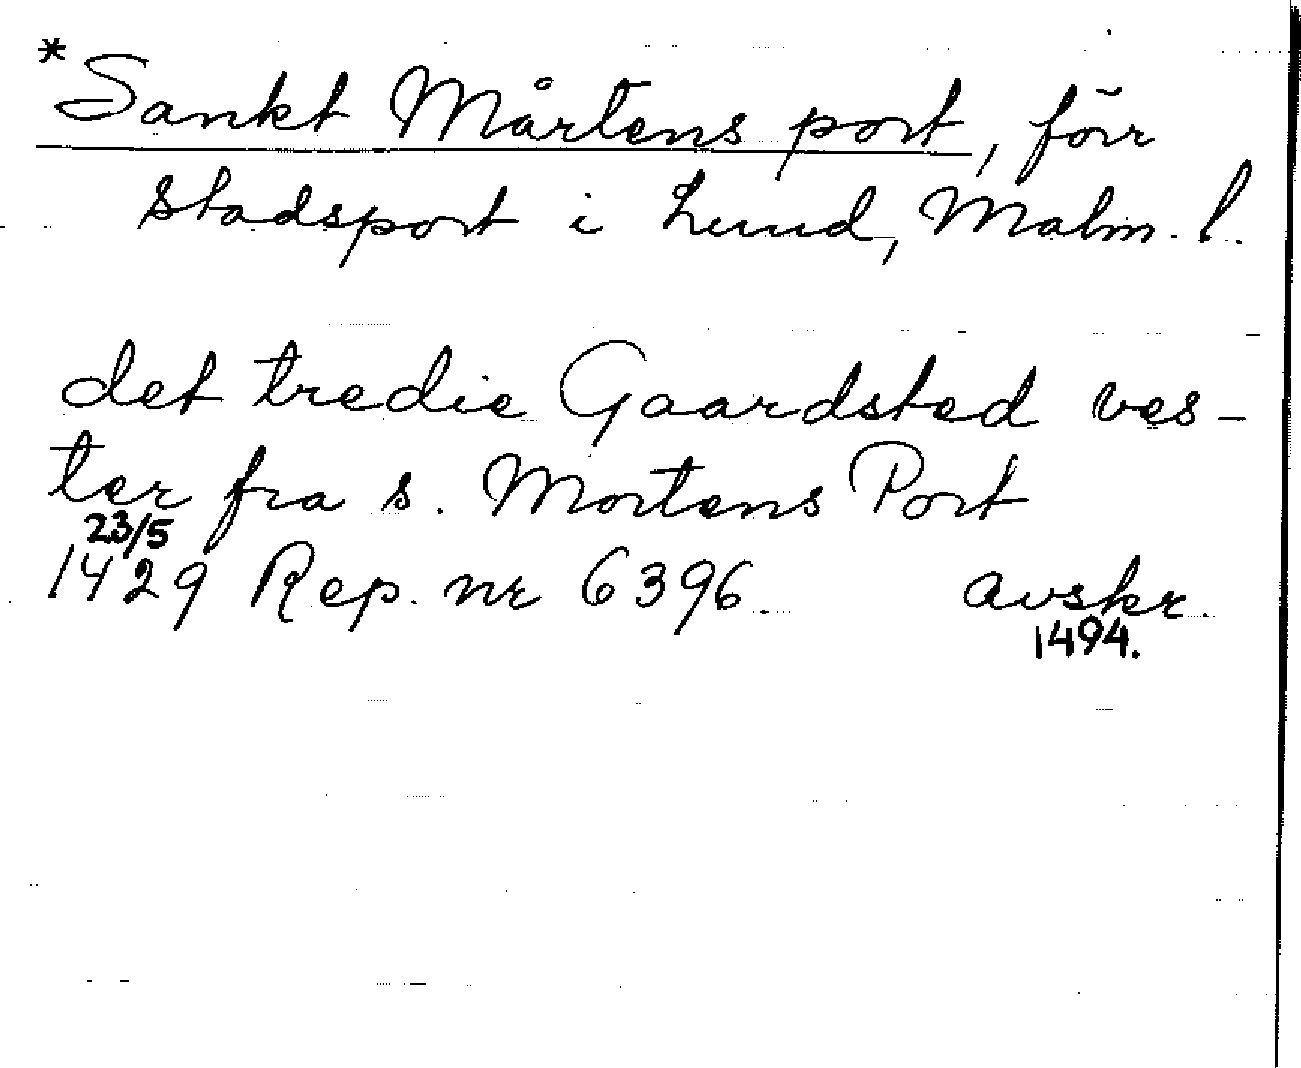 *Sankt Mårtens port, förr
stadsport i Lund, Malm. l.
det tredie Gaardsted ves-
ter fra s. Mortens Port
23/5
1429 Rep. nr 6396 avskr.
1494.